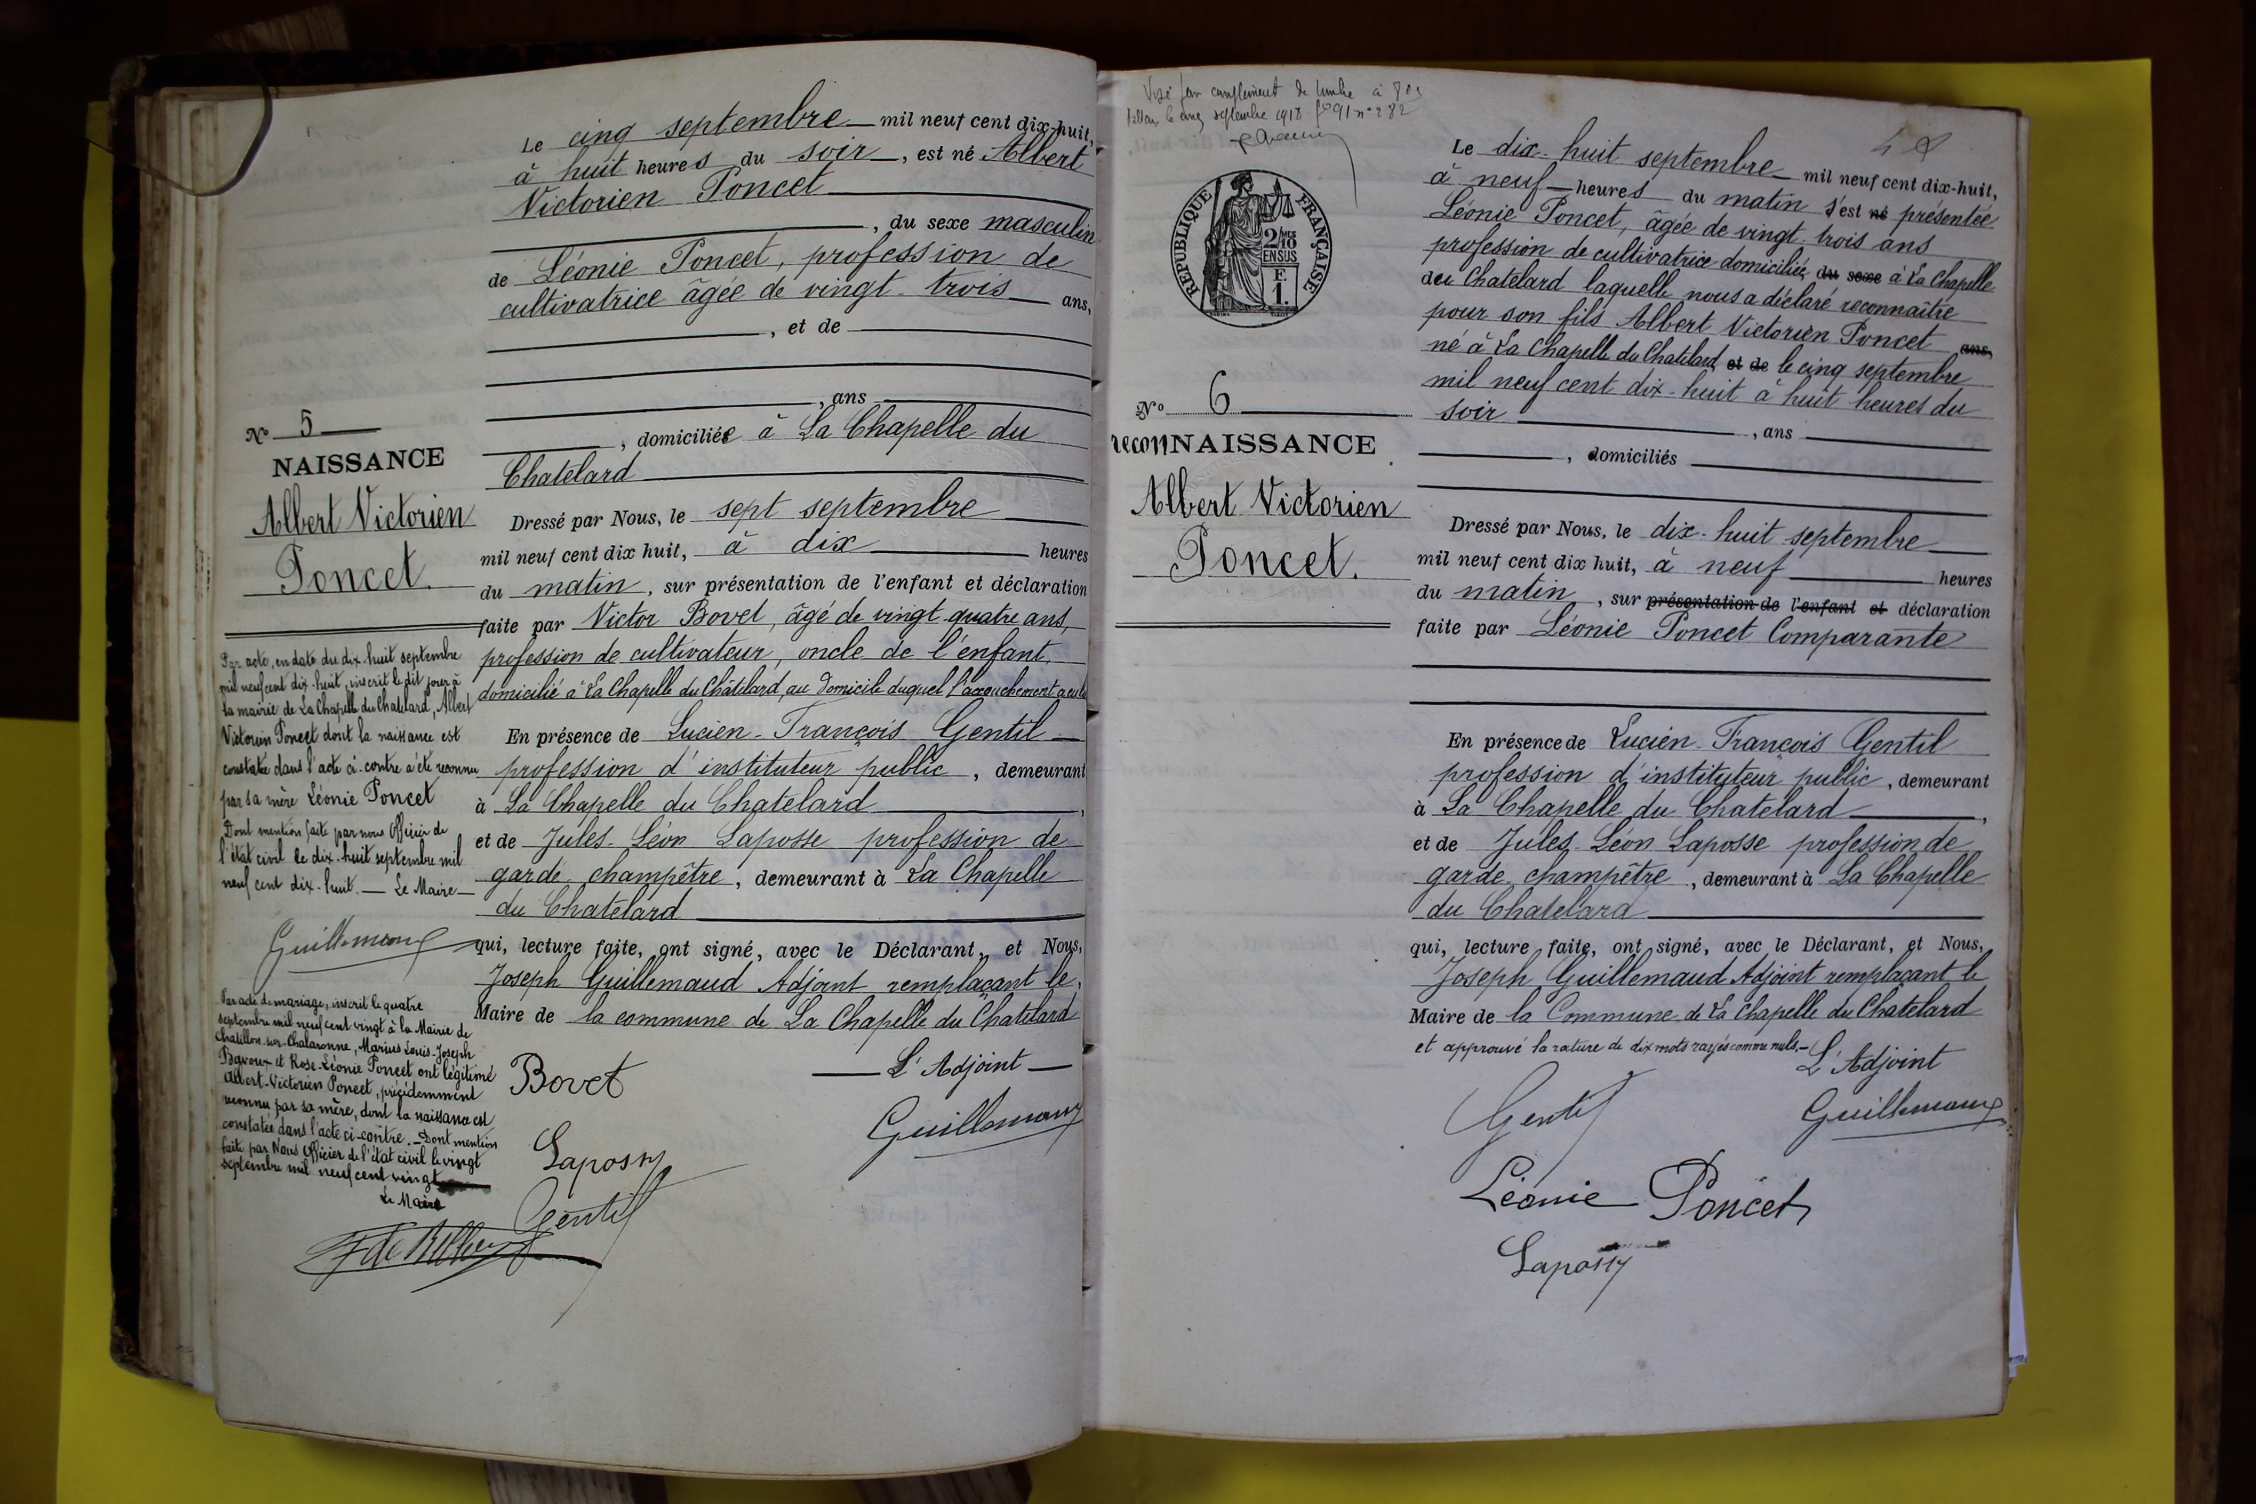 Le cinq septembre mil neuf cent dix-huit,
à huit heures du soir, est né Albert
Victorien Poncet
, du sexe masculin
de Léonie Poncet, profession de
cultivatrice âgée de vingt-trois ans,
, et de
, ans
, domiciliée à La Chapelle du
Chatelard
Dressé par Nous, le sept septembre
mil neuf cent dix huit, à dix heures
du matin, sur présentation de l'enfant et déclaration
faite par Victor Bovet, âgé de vingt quatre ans,
profession de cultivateur, oncle de l'enfant,
domicilié à La Chapelle du Châtelard, au domicile duquel l'accouchement a eu lieu
En présence de Lucien-François Gentil
profession d'instituteur public, demeurant
à La Chapelle du Chatelard,
et de Jules-Léon Laposse profession de
garde champêtre, demeurant à La Chapelle
du Chatelard
qui, lecture faite, ont signé, avec le Déclarant, et Nous,
Joseph Guillemaud Adjoint remplaçant le
Maire de la commune de La Chapelle du Chatelard
L'Adjoint
Bovet
Guillemaud
Laposse
Gentil
No 5
NAISSANCE
Albert Victorien
Poncet.
Par acte, en date du dix-huit septembre
mil neuf cent dix-huit, inscrit le dit jour à
la mairie de La Chapelle du Chatelard, Albert
Victorien Poncet dont la naissance est
constatée dans l'acte ci-contre a été reconnu
par sa mère Léonie Poncet
Dont mention faite par nous Officier de
l'état civil le dix-huit septembre mil
neuf cent dix-huit. — Le Maire —
Guillemaud
Par acte de mariage, inscrit le quatre
septembre mil neuf cent vingt à la Mairie de
Chatillon-sur-Chalaronne, Marius Louis-Joseph
Bavoux et Rose-Léonie Poncet ont légitimé
Albert-Victorien Poncet, précédemment
reconnu par sa mère, dont la naissance est
constatée dans l'acte ci-contre. — Dont mention
faite par Nous Officier de l'état civil le vingt
septembre mil neuf cent vingt
Le Maire
Visé pour complément de timbre à
le cinq septembre 1918 f° 91 n° 282
RÉPUBLIQUE FRANÇAISE
2/10 EN SUS
F
1.
No 6
reconNAISSANCE
Albert Victorien
Poncet.
Le dix-huit septembre mil neuf cent dix-huit,
à neuf heures du matin s'est né présentée
Léonie Poncet, âgée de vingt-trois ans
profession de cultivatrice domiciliée du sexe à La Chapelle
du Chatelard laquelle nous a déclaré reconnaître
pour son fils Albert Victorien Poncet ans,
né à La Chapelle du Chatelard et de le cinq septembre
mil neuf cent dix-huit à huit heures du
soir
, ans
, domiciliés
Dressé par Nous, le dix-huit septembre
mil neuf cent dix huit, à neuf heures
du matin, sur présentation de l'enfant et déclaration
faite par Léonie Poncet Comparante
En présence de Lucien-François Gentil
profession d'instituteur public, demeurant
à La Chapelle du Chatelard,
et de Jules-Léon Laposse profession de
garde champêtre, demeurant à La Chapelle
du Chatelard
qui, lecture faite, ont signé, avec le Déclarant, et Nous,
Joseph Guillemaud Adjoint remplaçant le
Maire de la Commune de La Chapelle du Chatelard
et approuvé la rature de dix mots rayés comme nuls. —
L'Adjoint
Gentil
Guillemaud
Léonie Poncet
Laposse